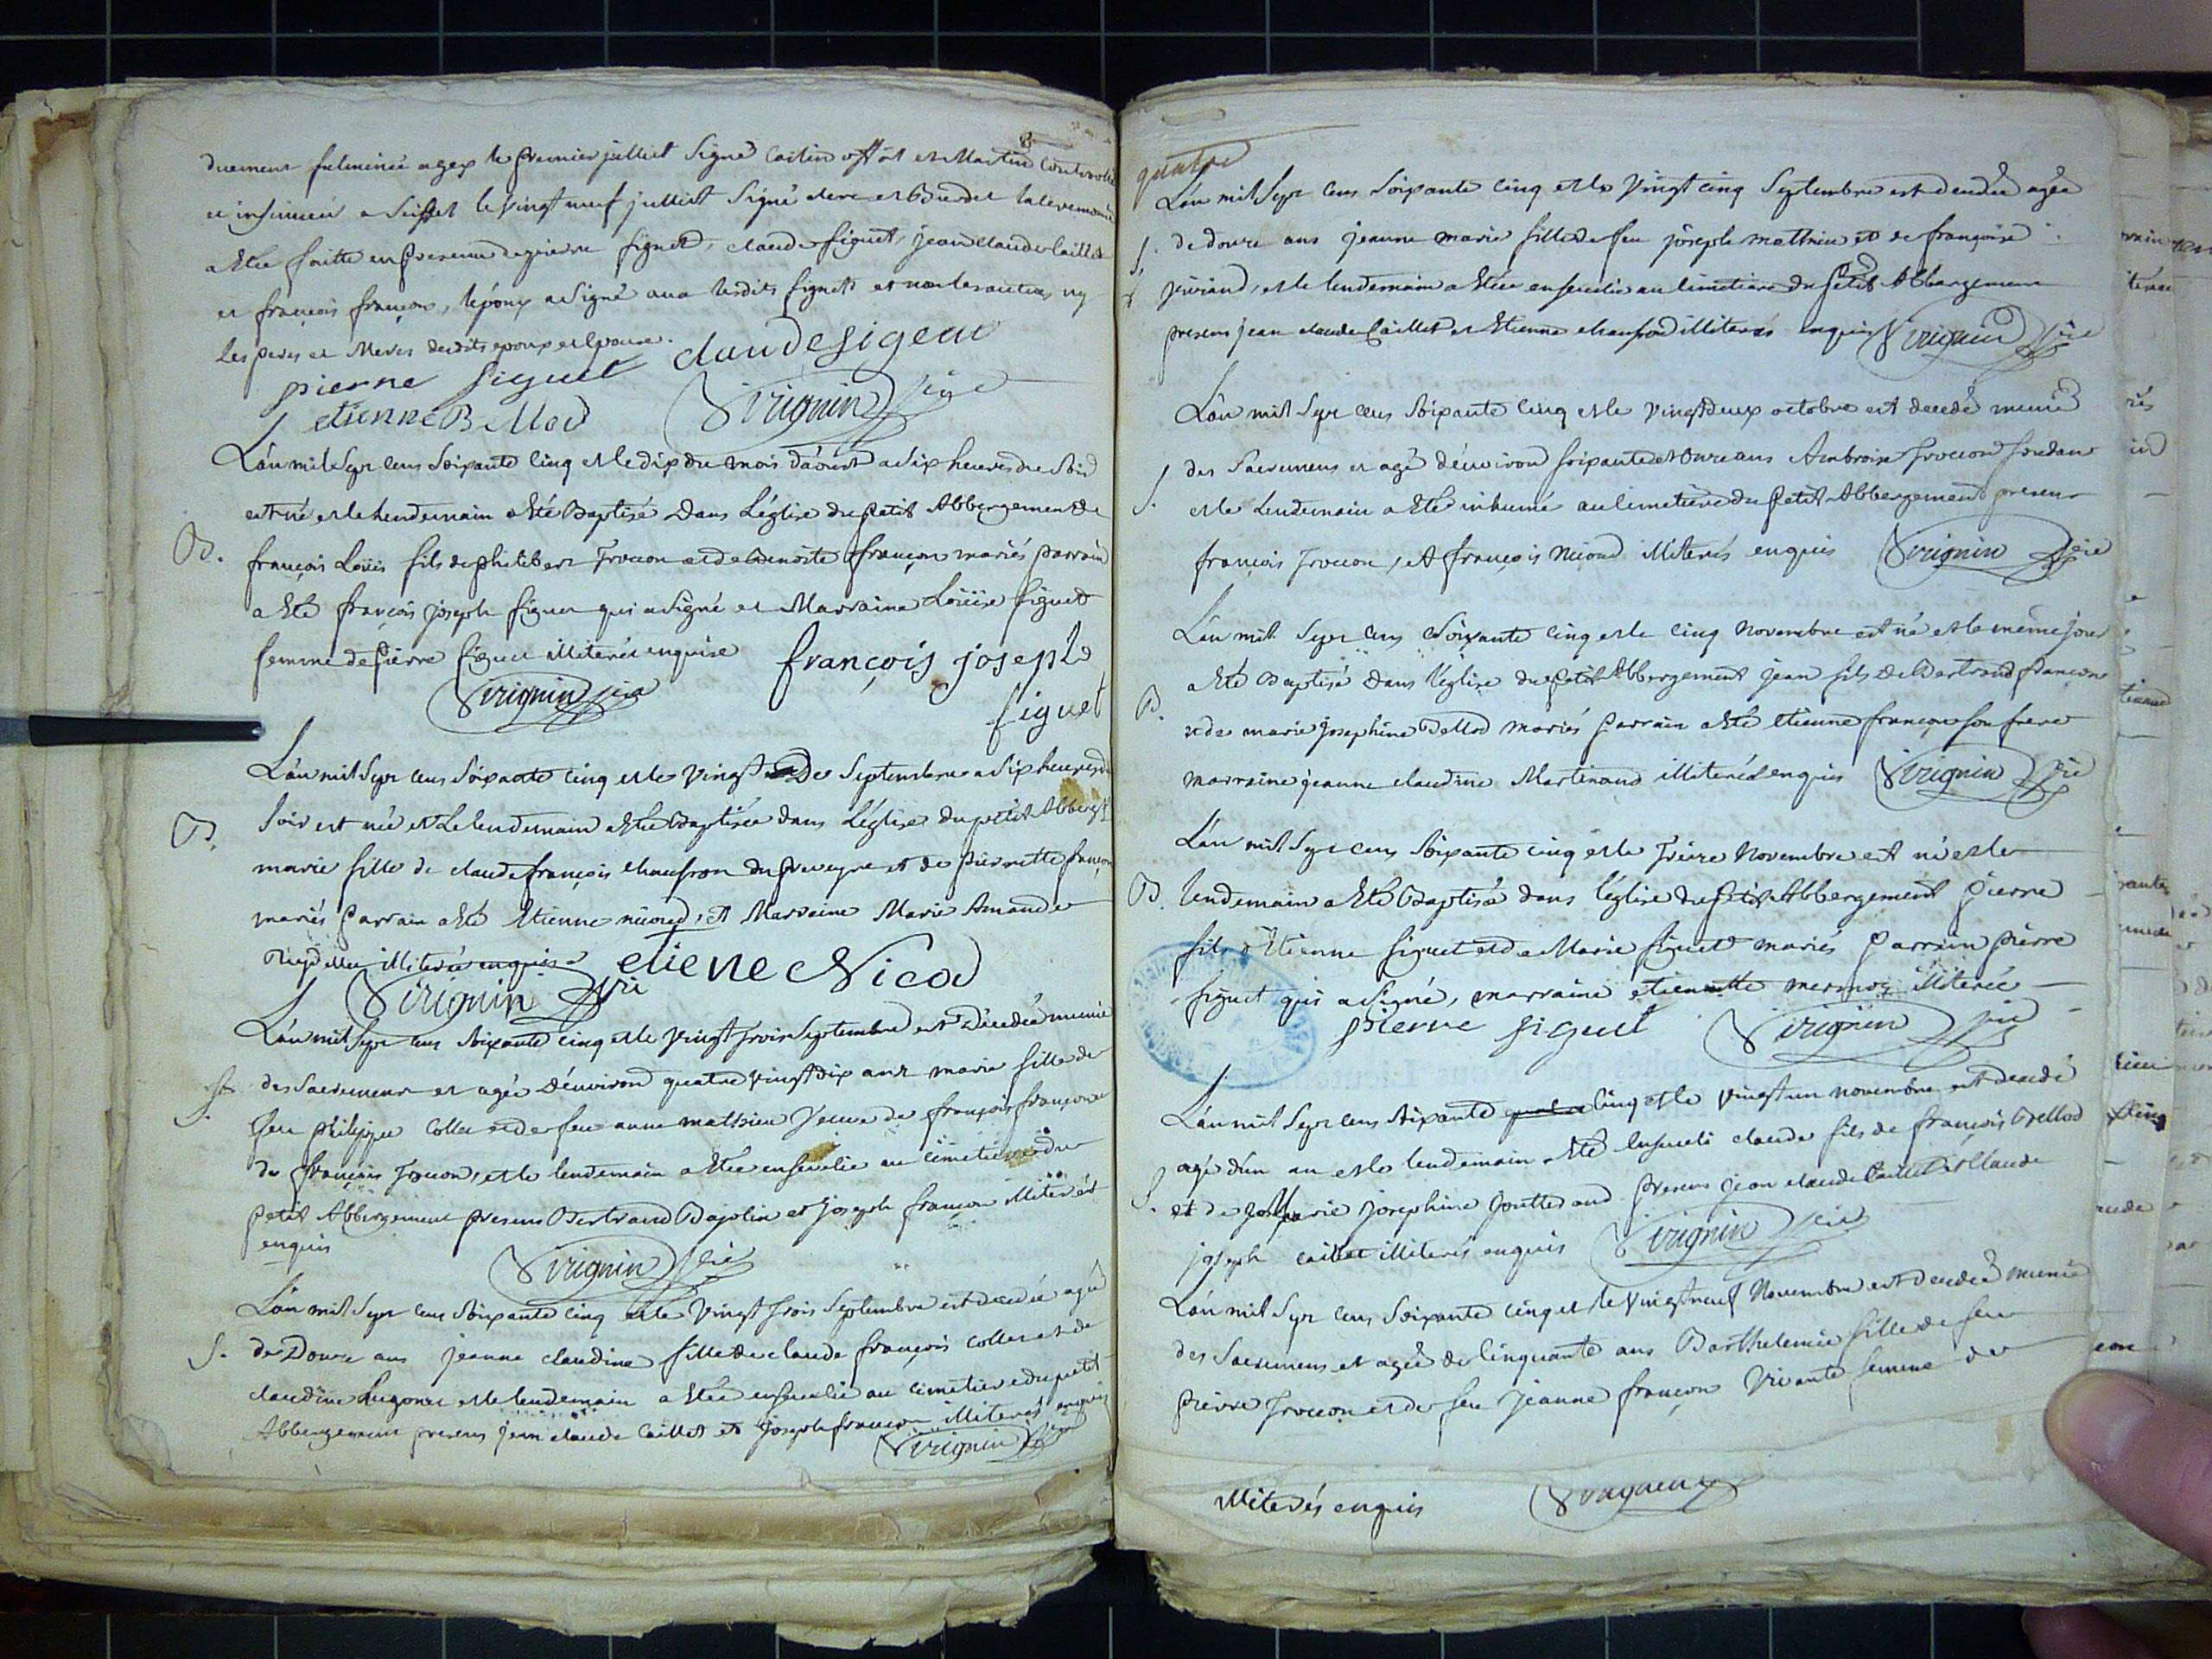 duement fulminée agex le premier julliet Signé et Martin
et insinuée a Seissel le vingt neuf julliet Signé et Burdet la ceremonie
a Eté faitte en presence de pierre figuet, claude figuet, jean claude Caillet
et françois françon, lépoux a Signé avec lesdits figuets et non les autres ny
les peres et Meres desdits epoux et Epouse.
claude figeut
pierne figuet
etienne Bellod Virignin
L'án mil Sept cens Soixante Cinq et le dix du mois d'áoust a Six heures du Soir
est né et le lendemain a Eté Baptisé dans L'église du petit Abbergement
B. françois Loüis fils de philibert Trocon et de Benoite françon mariés parrain
a Eté françois joseph figuet qui a Signé et Marraine Loüise figuet
femme de pierre figuet illiterée enquise françois joseph
Virignin figuet
L'án mil Sept cens Soixante cinq et le vingt de Septembre a Six heures du
B. Soir est née et Le lendemain a Eté Baptisée dans L'église du petit Abbergt
marie fille de claude françois chanfron du et de pierrette françon
mariés parrain a Eté Etienne nicoud, et Marraine Marie Amande
illiterée enquise etiene Nicod
Virignin
L'án mil Sept cens Soixante cinq et le vingt trois Septembre est Décedée munie
S. des Sacremens et agée d'énviron quatre vingt dix ans marie fille de
feu philippe Collet et de feu anne mathieu veuve de françois françon
de françois Trocon, et le lendemain a Eté ensevelie au cimetiere du
petit Abbergement presens Bertrand Bajolin et joseph françon illiterés
enquis
Virignin
L'án mil Sept cens Soixante cinq et le vingt trois Septembre est decedée agée
S. de Douze ans jeanne claudine fille de claude françois collet et de
claudine et le lendemain a Eté ensevelie au cimetiere du petit
Abbergement presens jean claude Caillet et joseph françon illiterés enquis
Virignin
quatre
L'án mil Sept cens Soixante cinq et le vingt cinq Septembre est decedée agée
S. de douze ans jeanne marie fille de feu joseph mathieu et de françoise
et le lendemain a Etée ensevelie au cimetiere du petit Abbergement
presens jean claude Caillet et Etienne illiterés enquis Virignin
L'án mil Sept cens Soixante Cinq et le vingt deux octobre est decedé munie
S. des Sacremens et agé d'énviron Soixante et onze ans Ambroise Trocon
et le Lendemain a Eté inhumé au Cimetiere du petit Abbergement presens
françois Trocon, et françois nicoud illiterés enquis Virignin
L'án mil Sept cens Soixante Cinq et le cinq Novembre est né et le même jour
B. a Eté Baptisé dans l'église du petit Abbergement jean fils de Bertrand françon
et de marie josephine Bellod mariés parrain a Eté Etienne françon Son frere
marraine jeanne claudine Martinand illiterés enquis Virignin
L'án mil Sept cens Soixante cinq et le Treize Novembre est né et le
B. lendemain a Eté Baptisé dans l'église du petit Abbergement pierre
fils d'Etienne figuet et de Marie figuet mariés parrain pierre
figuet qui a Signé, marraine etiennette mermoz illiterée
pierre figuet Virignin
L'án mil Sept cens Soixante quatre cinq et le vingt un novembre est decedé
agé d'ún an et le lendemain a Eté Enseveli claude fils de françois Bellod
S. et de Marie josephine presens jean claude Caillet et Claude
joseph caillet illiterés enquis Virignin
L'án mil Sept cens Soixante cinq et le vingt neuf Novembre est decedée munie
des Sacremens et agée de Cinquante ans Barthelemie fille de feu
pierre Trocon et de feu jeanne françon vivante femme de
illiterés enquis Virignin